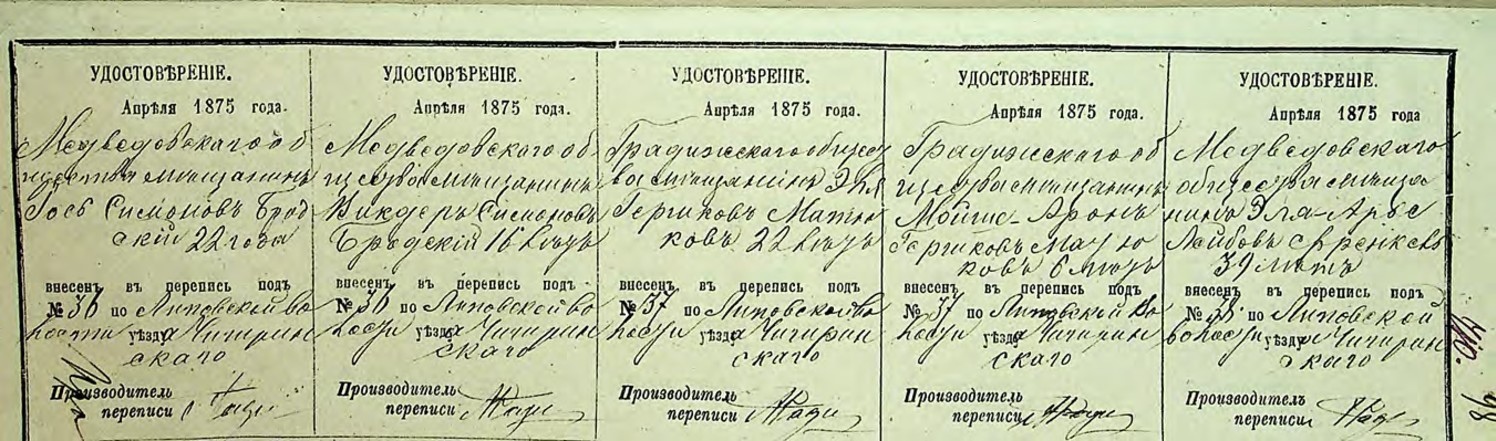 УДОСТОВѢРЕНІЕ.
Апрѣля 1875 года.
Медведовскаго об
щества мѣщанинъ
Іось Симоновъ Брод
скій 22 года
внесенъ въ перепись подъ
№ 36 по Липовской во
лости уѣзда Чигирин
скаго
Производитель
переписи
УДОСТОВѢРЕНІЕ.
Апрѣля 1875 года.
Медведовскаго об
щества мѣщанинъ
Симоновъ
Бродскій 16 лѣтъ
внесенъ въ перепись подъ
№ 36 по Липовской во
лости уѣзда Чигирин
скаго
Производитель
переписи
УДОСТОВѢРЕНІЕ.
Апрѣля 1875 года.
Градижскаго общест
ва мѣщанинъ
Гершковъ
22 лѣтъ
внесенъ въ перепись подъ
№ 37 по Липовской во
лости уѣзда Чигирин
скаго
Производитель
переписи
УДОСТОВѢРЕНІЕ.
Апрѣля 1875 года.
Градижскаго об
щества мѣщанинъ
Мойше-Аронъ
Гершковъ
6 лѣтъ
внесенъ въ перепись подъ
№ 37 по Липовской во
лости уѣзда Чигирин
скаго
Производитель
переписи
УДОСТОВѢРЕНІЕ.
Апрѣля 1875 года
Медведовскаго
общества мѣща
нинъ Эля-
Лейбовъ
39 лѣтъ
внесенъ въ перепись подъ
№ 38 по Липовской
волости уѣзда Чигирин
скаго
Производитель
переписи